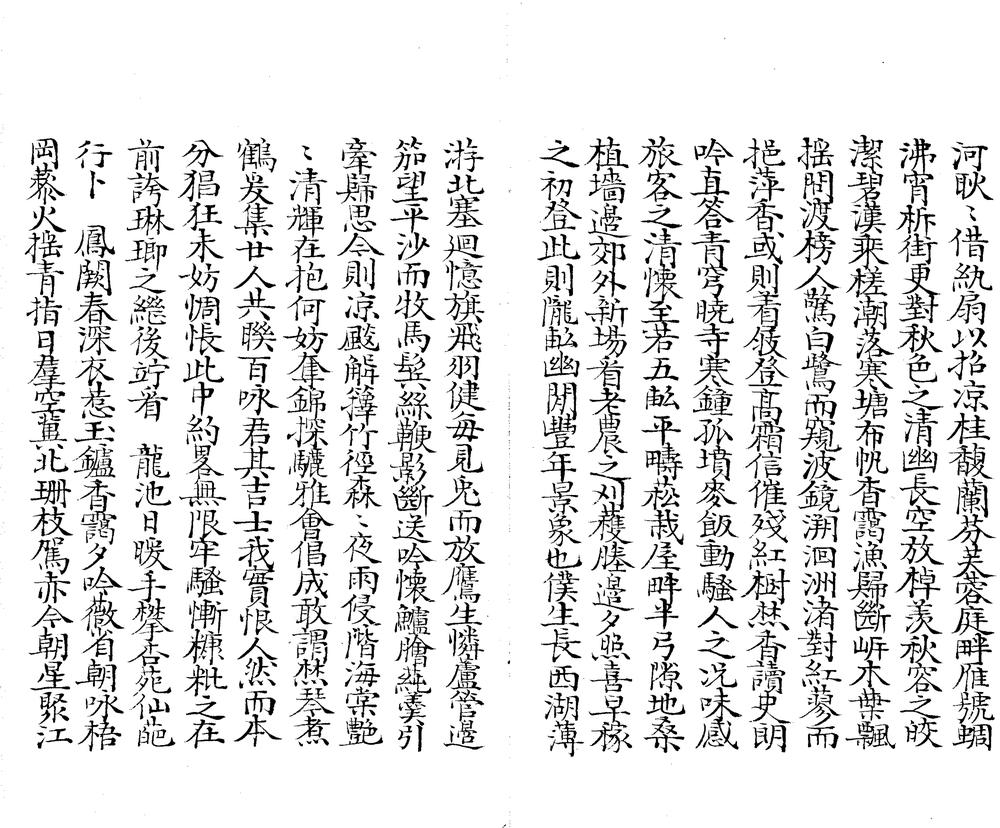 河耿〻借紈扇以招凉桂馥蘭芬芙蓉庭畔雁號蜩
沸宵柝街更對秋色之清幽長空放棹羡秋容之皎
潔碧漢乘槎潮落寒塘布帆香靄漁歸斷岍木葉飄
搖問渡榜人驚白鷺而窺波鏡溯洄洲渚對紅蓼而
挹萍香或則着屐登髙霜信催殘紅樹焚香讀史朗
吟真答青穹曉寺寒鐘孤墳麥飯動騷人之況味感
旅客之清懷至若五畝平疇菘栽屋畔半弓隙地桑
植墻邉郊外新場看老農之刈穫塍邉夕照喜早稼
之初登此則隴畝幽閒豐年景象也僕生長西湖薄
游北塞迴憶旗飛羽健每見兔而放鷹生憐蘆管邉
笳望平沙而牧馬鬂絲鞭影斷送吟懷鱸膾蓴羹引
牽歸思今則凉飈解籜竹徑森〻夜雨侵階海棠艷
〻清輝在抱何妨奪錦探驪雅會倡成敢謂焚琴煮
鶴爰集廿人共聯百咏君其吉士我實恨人然而本
分猖狂未妨惆悵此中約畧無限牢騷慚糠粃之在
前誇琳瑯之繼後竚看　龍池日暖手攀杏苑仙葩
行卜　鳳闕春深衣惹玉鑪香靄夕吟薇省朝咏梧
岡藜火搖青指日羣空冀北珊枝駕赤今朝星聚江